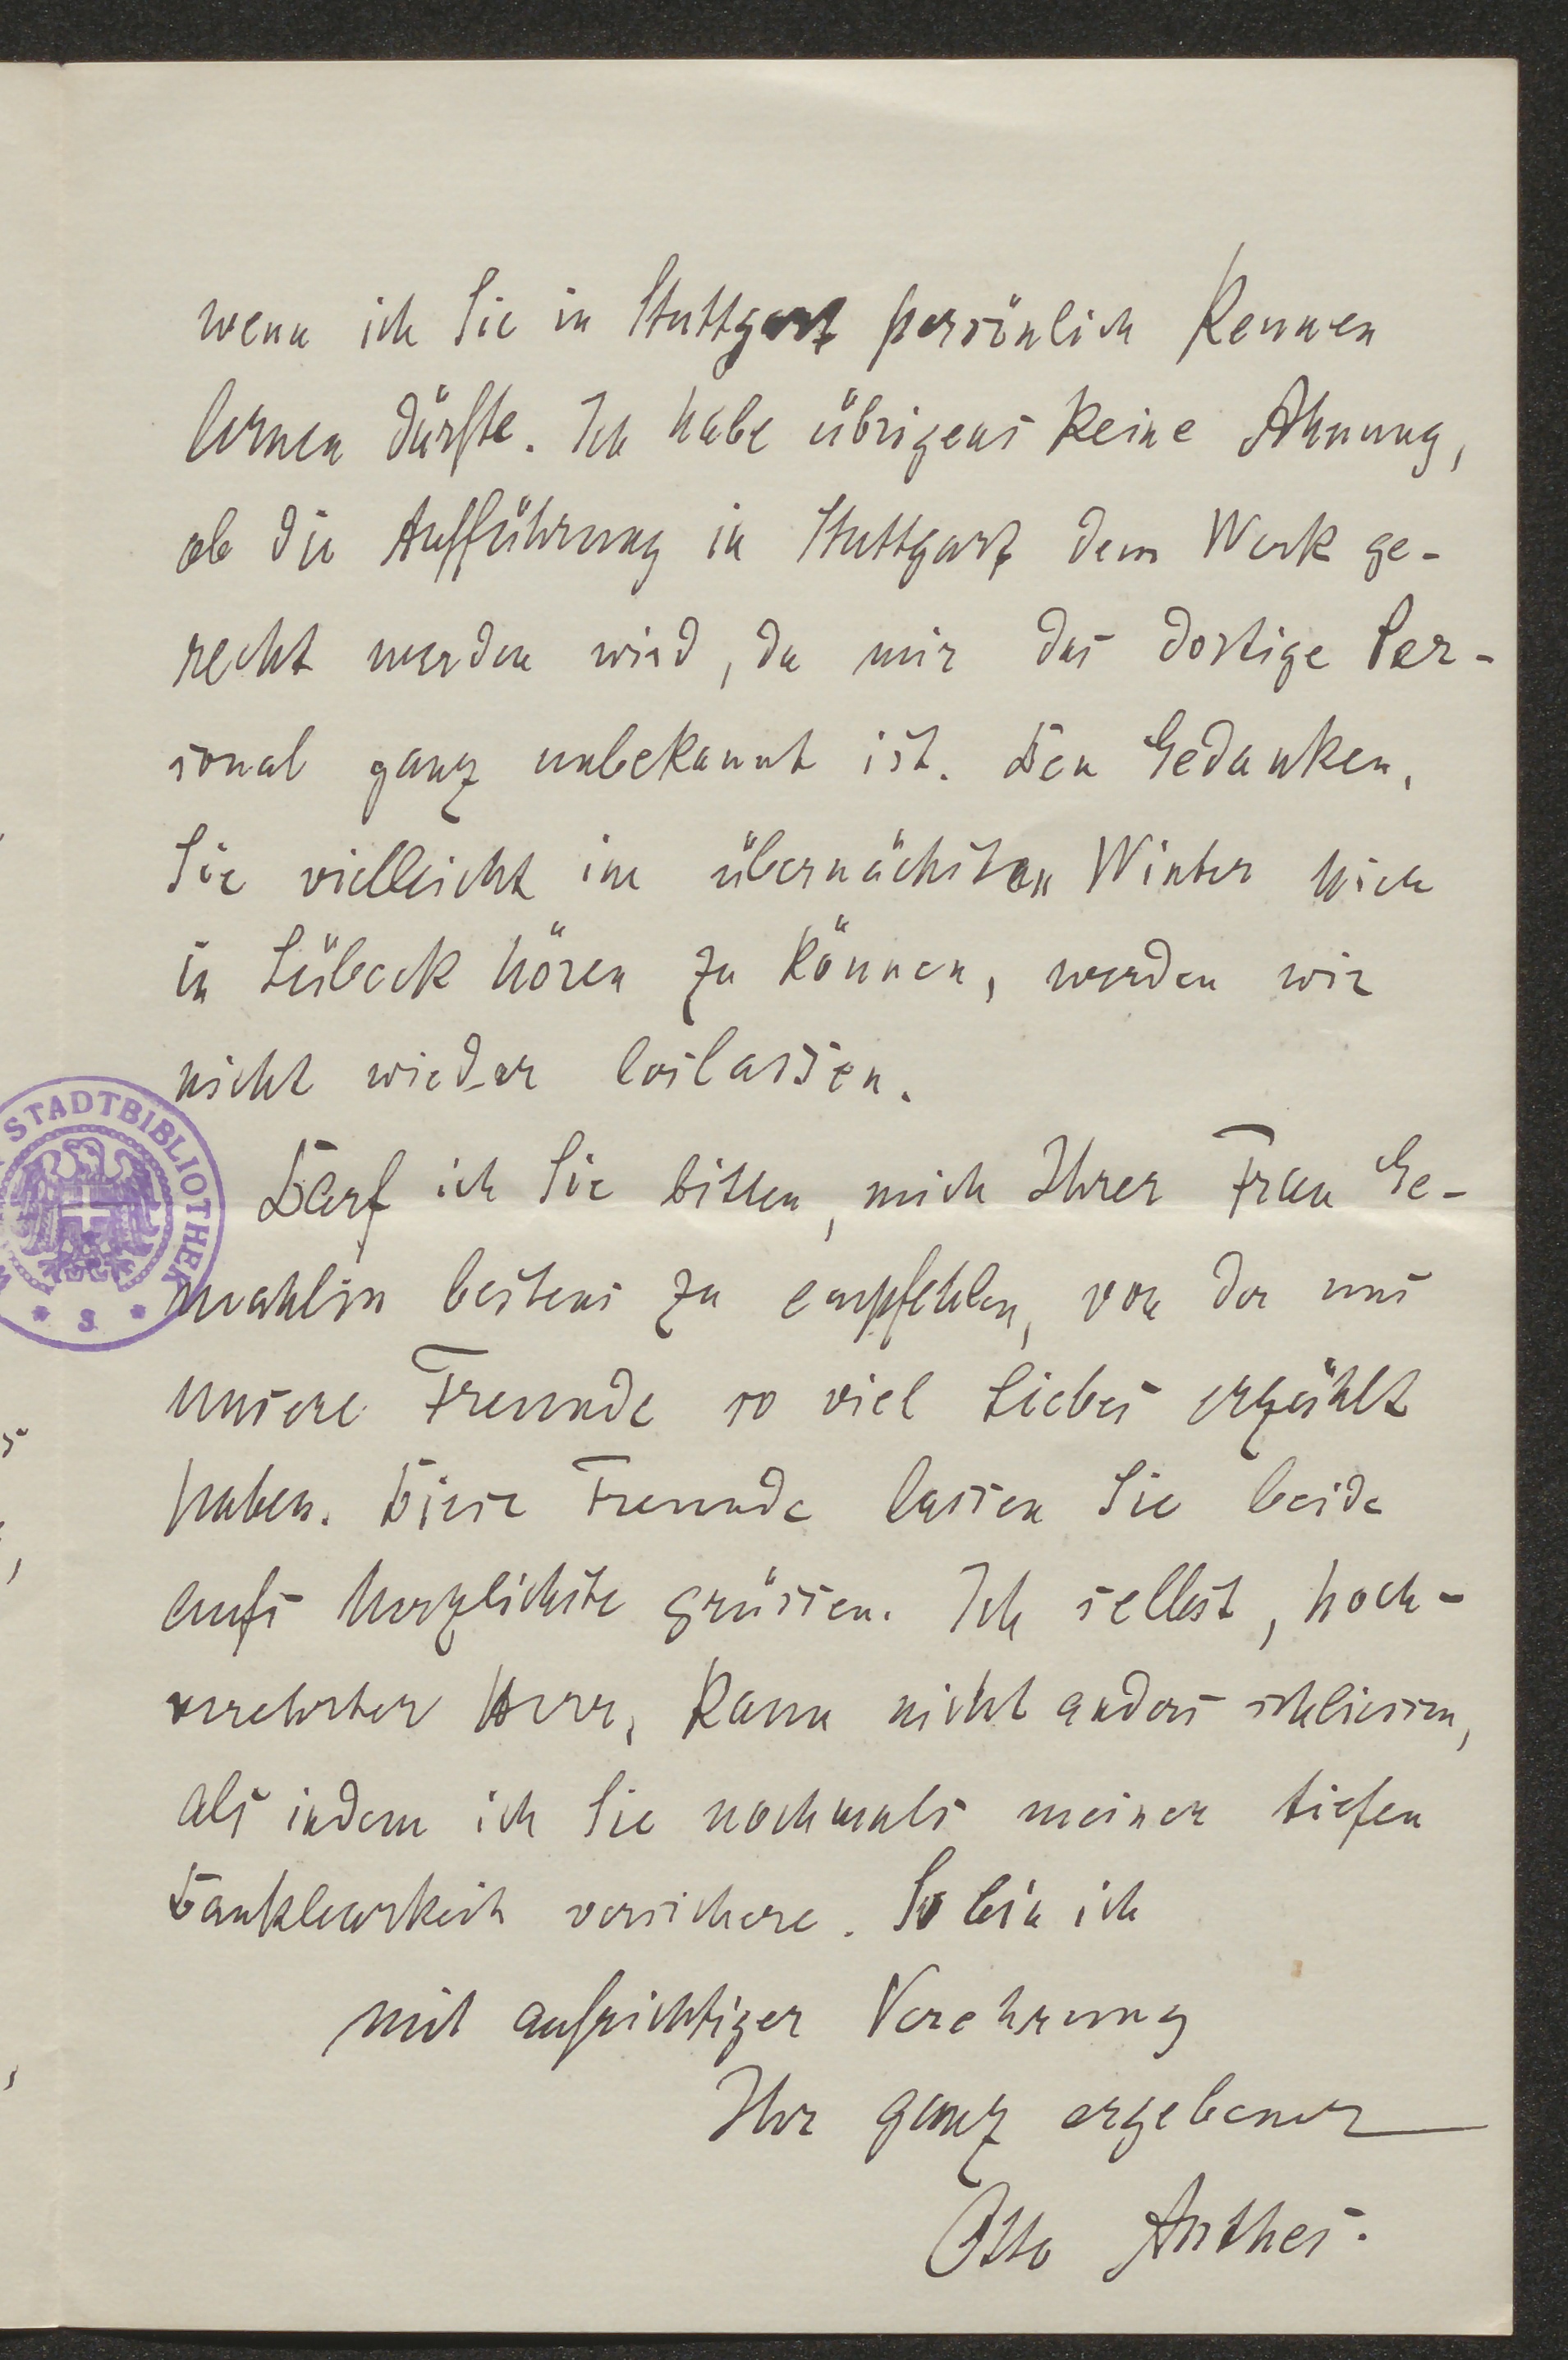 wenn ich Sie in Stuttgart persönlich kennen
lernen dürfte. Ich habe übrigens keine Ahnung,
ob die Aufführung in Stuttgart dem Werk ge-
recht werden wird, da mir das dortige Per-
sonal ganz unbekannt ist. Den Gedanken,
Sie vielleicht im übernächsten Winter hier
in Lübeck hören zu können, werden wir
nicht wieder loslassen.
Darf ich Sie bitten, mich Ihrer Frau Ge-
mahlin bestens zu empfehlen, von der uns
unsere Freunde so viel Liebes erzählt
haben. Diese Freunde lassen Sie beide
aufs herzlichste grüssen. Ich selbst, hoch-
verehrter Herr, kann nicht anders schliessen,
als indem ich Sie nochmals meiner tiefen
Dankbarkeit versichere. So bin ich
mit aufrichtiger Verehrung
Ihr ganz ergebener
Otto Anthes.
STADTBIBLIOTHEK
* 3. *